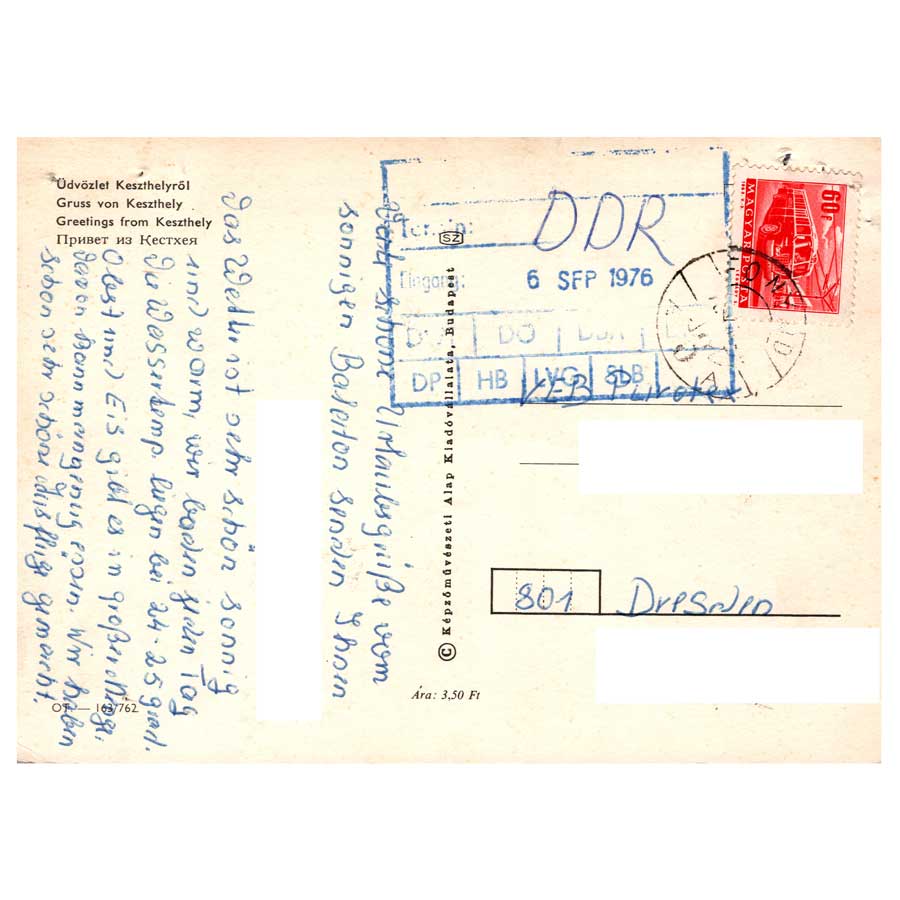 Üdvözlet Keszthelyről
Gruss von Keszthely
Greetings from Keszthely
Привет из Кестхея
Viele schöne Urlaubsgrüße vom
sonnigen Balaton senden Ihnen
Das Wetter ist sehr schön sonnig
und warm, wir baden jeden Tag
Die Wassertemp. liegen bei 24-25 grad.
Obst und Eis gibt es in großer Menge,
davon kann man genug essen. Wir haben
schon sehr schöne Ausflüge gemacht.
OT — 163/762
SZ
© Képzőművészeti Alap Kiadóvállalata, Budapest
Ára: 3,50 Ft
Termin:
DDR
Eingang: 6 SEP 1976
DO
DP HB LVG SLB
60f
MAGYAR POSTA
VEB
801 Dresden